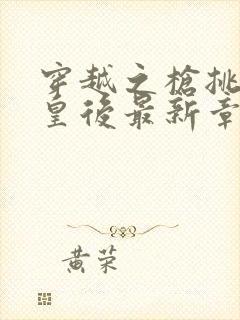 穿越之槍挑
皇後最新章
黄荣